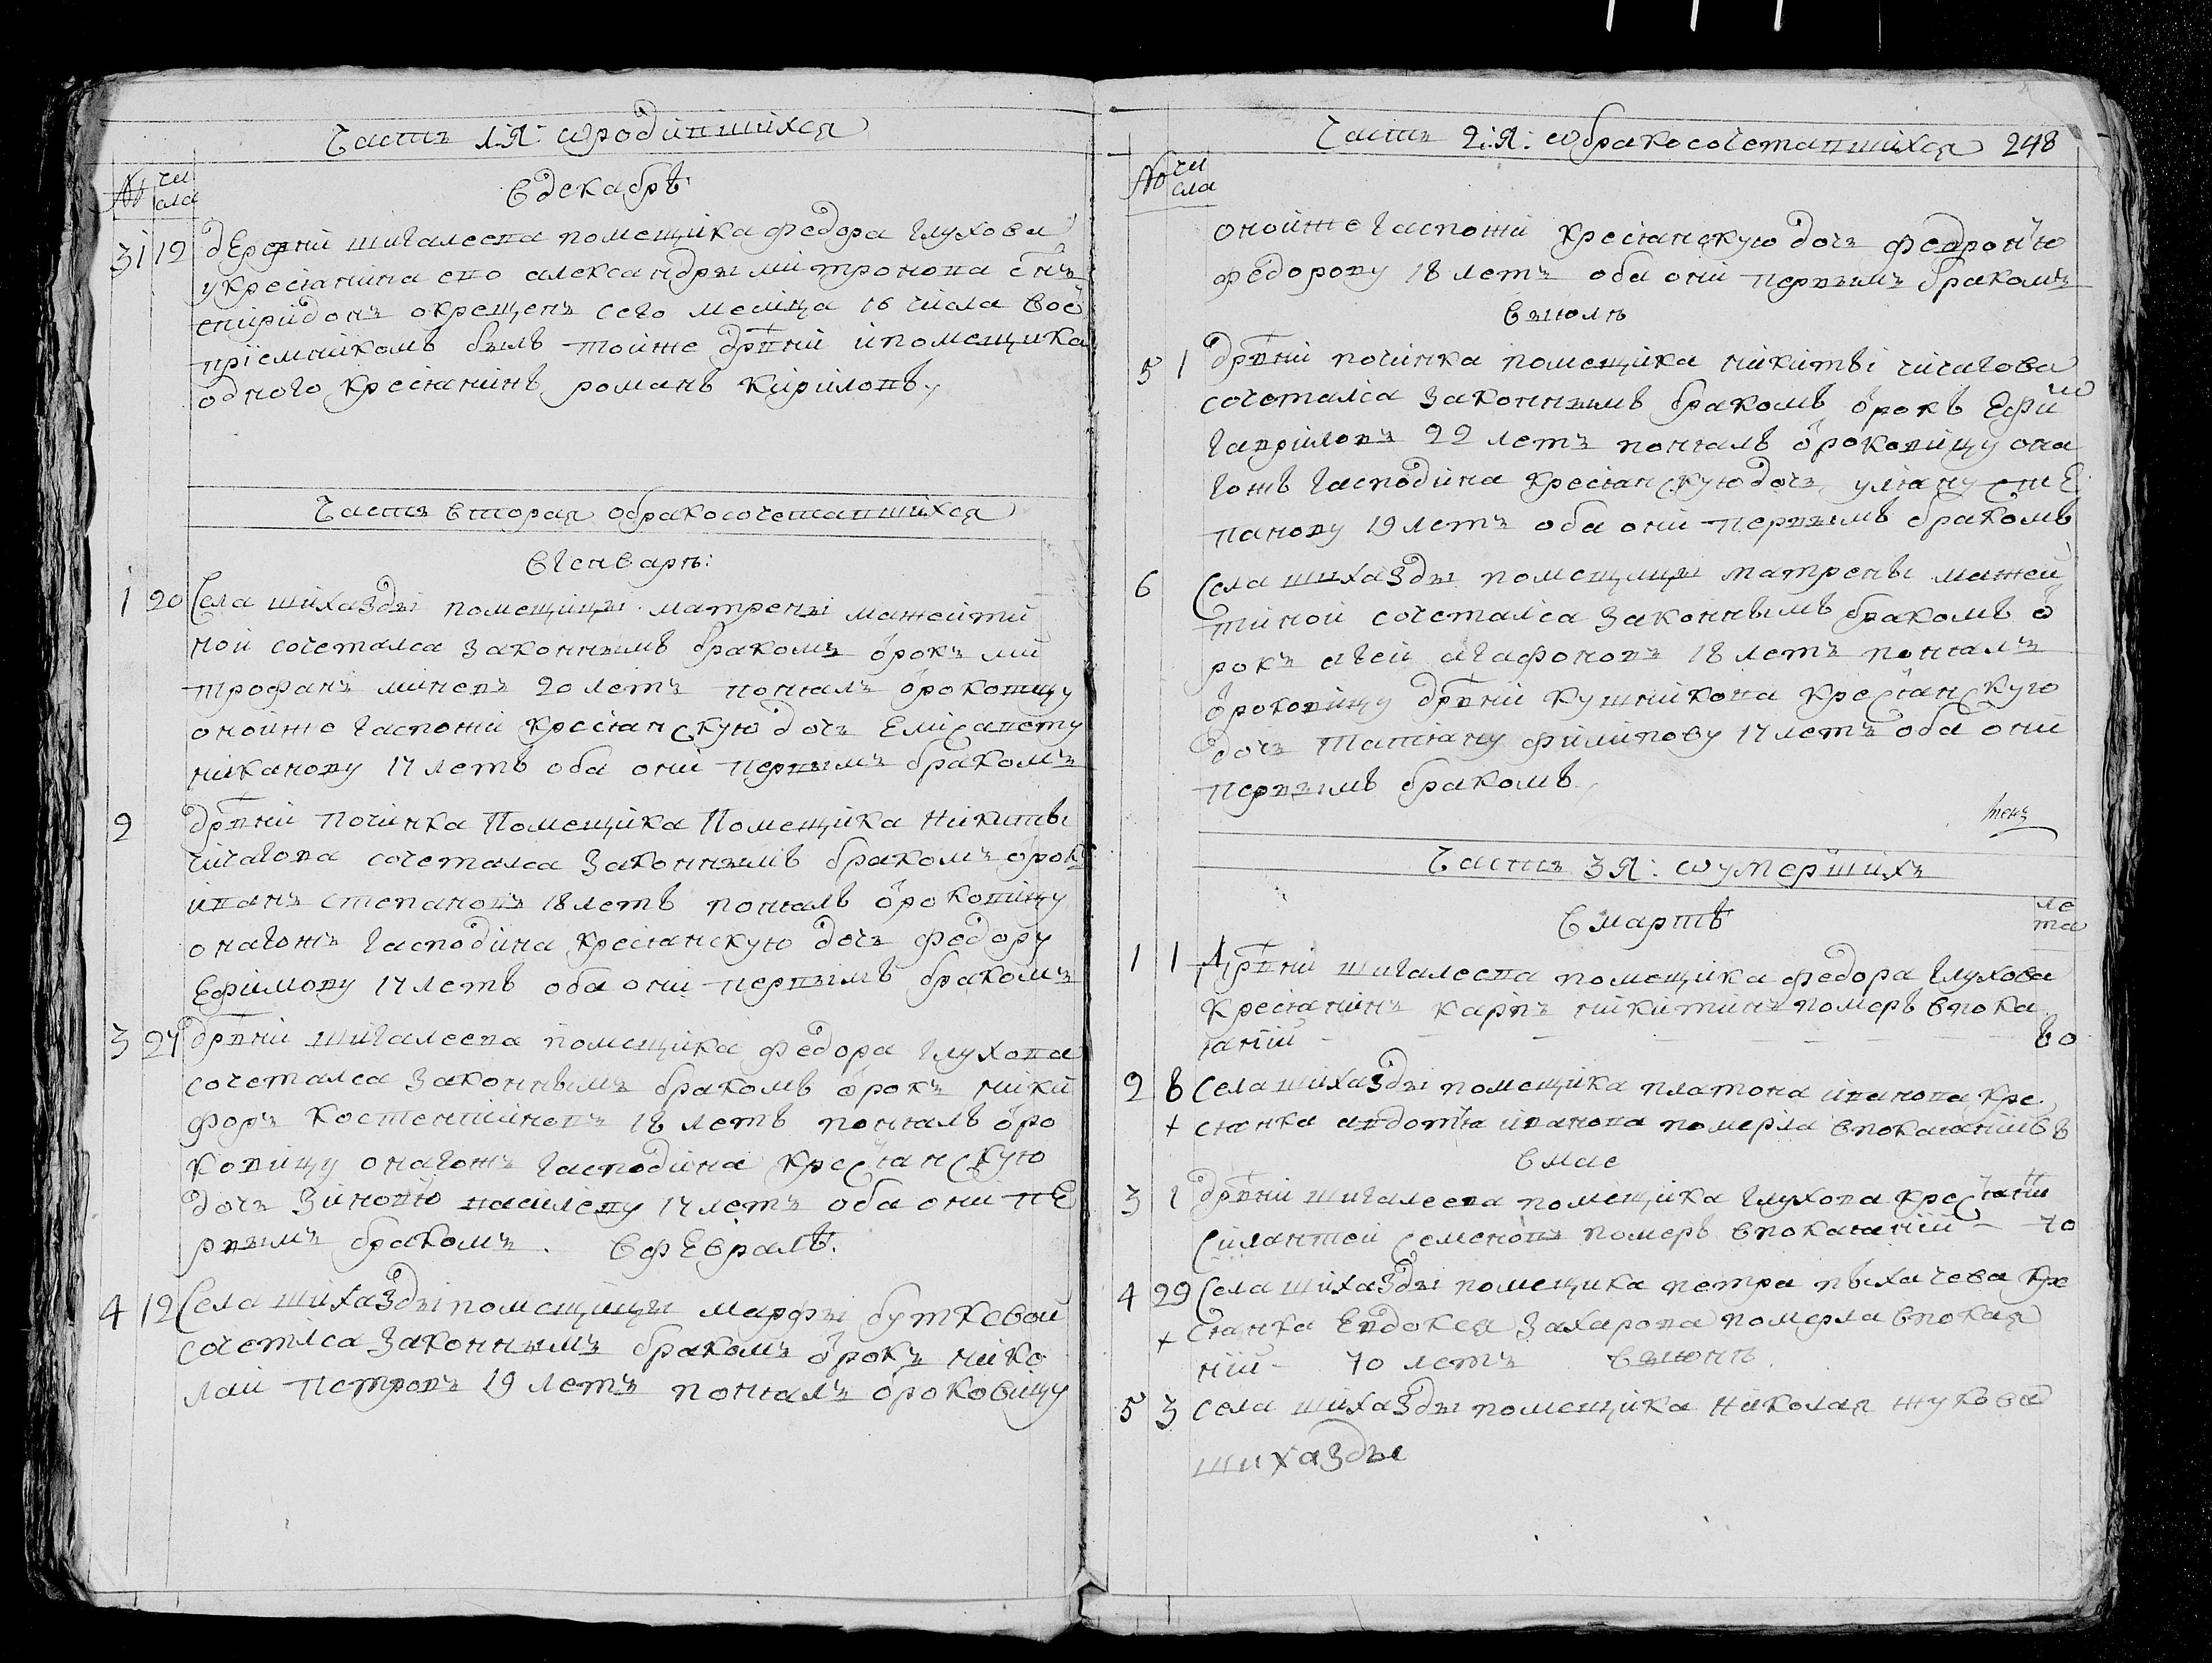 Часть 1:Я: ѡродившихся
№ чи
сла
Вдекабрѣ
31 12 дЕревни шигалеева помещика федора глухова
укрестьянина ево александры митрофонова снъ
спиридонъ окрещенъ сего месяца 16 числа вос
приемникомъ былъ тойже дрвни ипомещика
одного крестьянинъ романъ кириловъ
Часть вторая обракосочетавшихся
ВГенваре:
1 20 Села шихазды помещицы матрены мажейти
ной сочетался законнымъ бракомъ ѻрокъ ми
трофанъ минеевъ 20 летъ понялъ ѻроковицу
онойже гаспожи крестьянскую дочъ Елисавету
никанову 17 летъ оба они первымъ бракомъ
2 дрвни починка Помещика Помещика Никиты
чичагова сочетался законнымъ бракомъ ѻрокъ
иванъ степановъ 18 летъ понялъ ѻроковицу
онагожъ гасподина крестьянскую дочъ федору
Ефимову 17 летъ оба они первымъ бракомъ
3 27 дрвни шигалеева помещика федора глухова
сочетался законнымъ бракомъ ѻрокъ ники
форъ костентиновъ 18 летъ понялъ ѻро
ковицу онагожъ гасподина крестьянскую
дочъ зиновью василеву 17 летъ оба они пЕ
рвымъ бракомъ. ВфЕвралѣ.
4 12 Села шихазды помещицы марфы буткевой
сочетлса законнымъ бракомъ ѻрокъ нико
лай петровъ 19 летъ понялъ ѻроковицу
Часть 2:Я: ѡбракосочетавшихся 248
№ чи
сла
онойже гаспожи крестьянскую дочъ федронью
федорову 18 летъ оба они первымъ бракомъ
Вьюле
5 1 дрвни починка помещика никиты чичагова
сочетался законнымъ бракомъ ѻрокъ Ефи
гавриловъ 22 летъ понялъ ѻроковицу она
гожъ гасподина крестьянскую дочъ ульяну стЕ
панову 19 летъ оба они первымъ бракомъ
6 Села шихазды помещицы матрены мажей
тиной сочетался законнымъ бракомъ ѻ
рокъ агей агафоновъ 18 летъ понялъ
ѻроковицу дрвни кушникова крестьянскую
дочъ татьяну филипову 17 летъ оба они
первымъ бракомъ
Часть 3Я: ѡумершихъ
Вмартѣ
ле
та
1 1 Дрвни шигалеева помещика федора глухова
крестьянинъ карпъ никитинъ померъ впока
янии 80
2 8 села шихазды помещика платона иванова кре
+ стьянка авдотья иванова померла впокаянии 68
вмае
3 1 дрвни шигалеева помещика глухова крестьяни
силантей семеновъ померъ впокаянии 70
4 29 Села шихазды помещика петра пыхачева кре
+ стьянка Евдокея захарова померла впокая
нии 70 летъ вьюне
5 3 села шихазды помещика николая жукова
шихазды